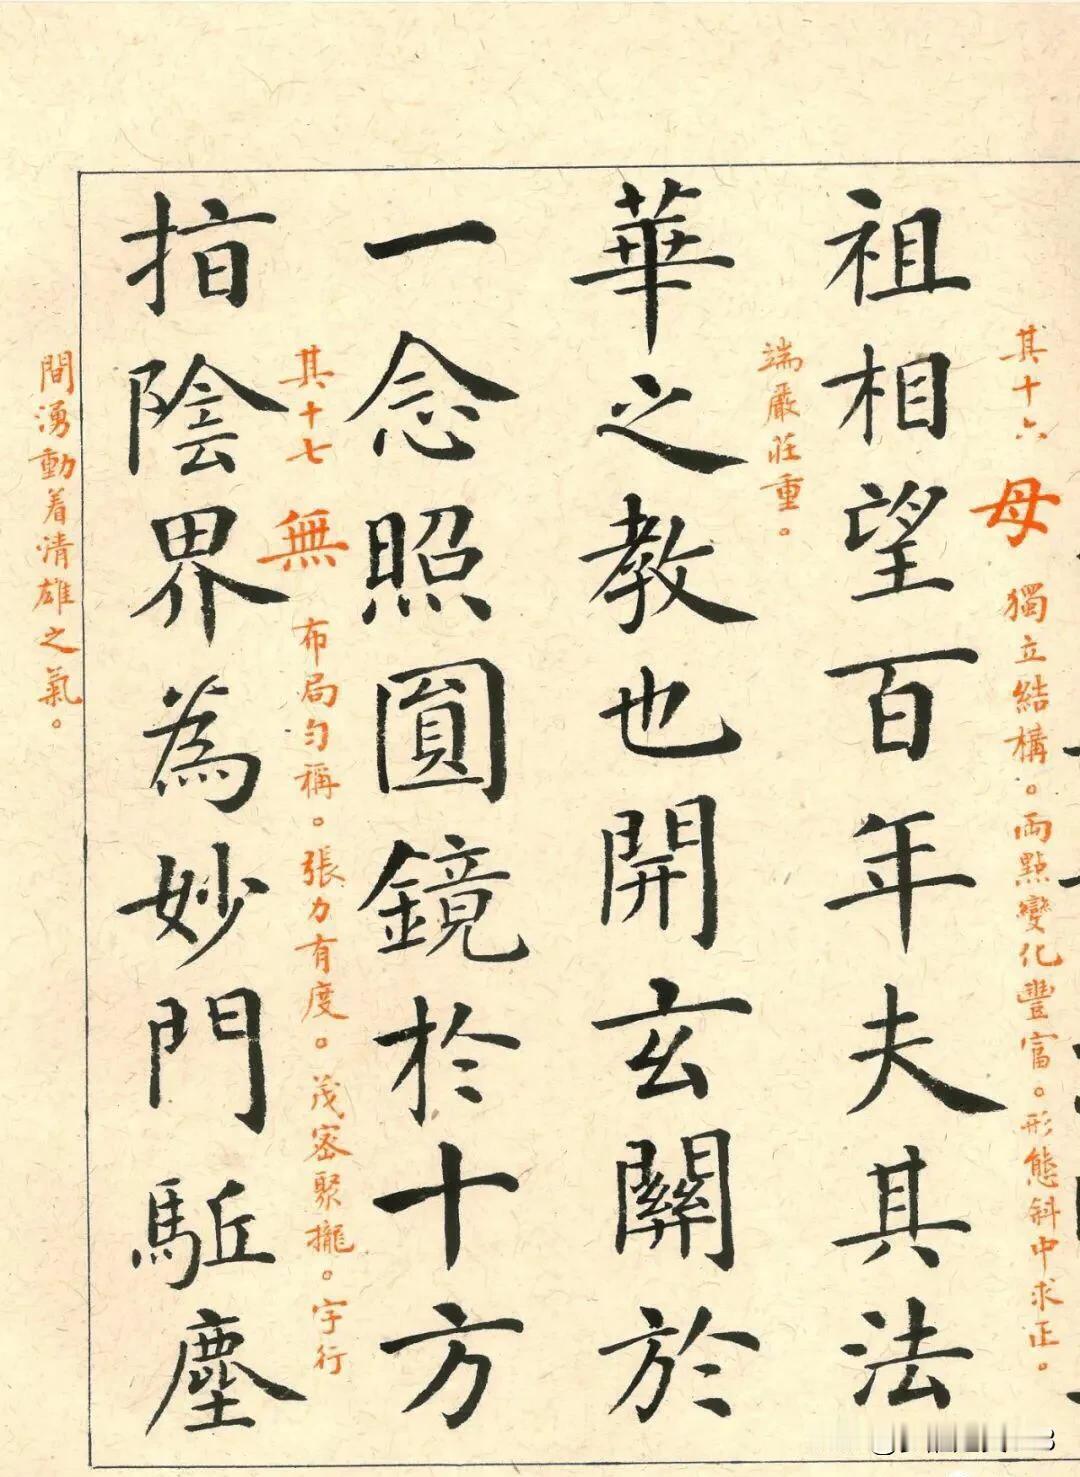 其十六 母 獨立結構。兩點變化豐富。形態斜中求正。
祖相望百年夫其法
端嚴莊重。
華之教也開玄關於
一念照圓鏡於十方
其十七 無 布局勻稱。張力有度。茂密聚攏。字行
指陰界為妙門駈塵
間湧動着清雄之氣。